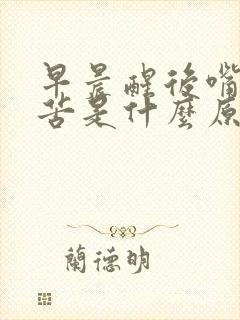 早晨醒後嘴
苦是什麼原
蘭德明